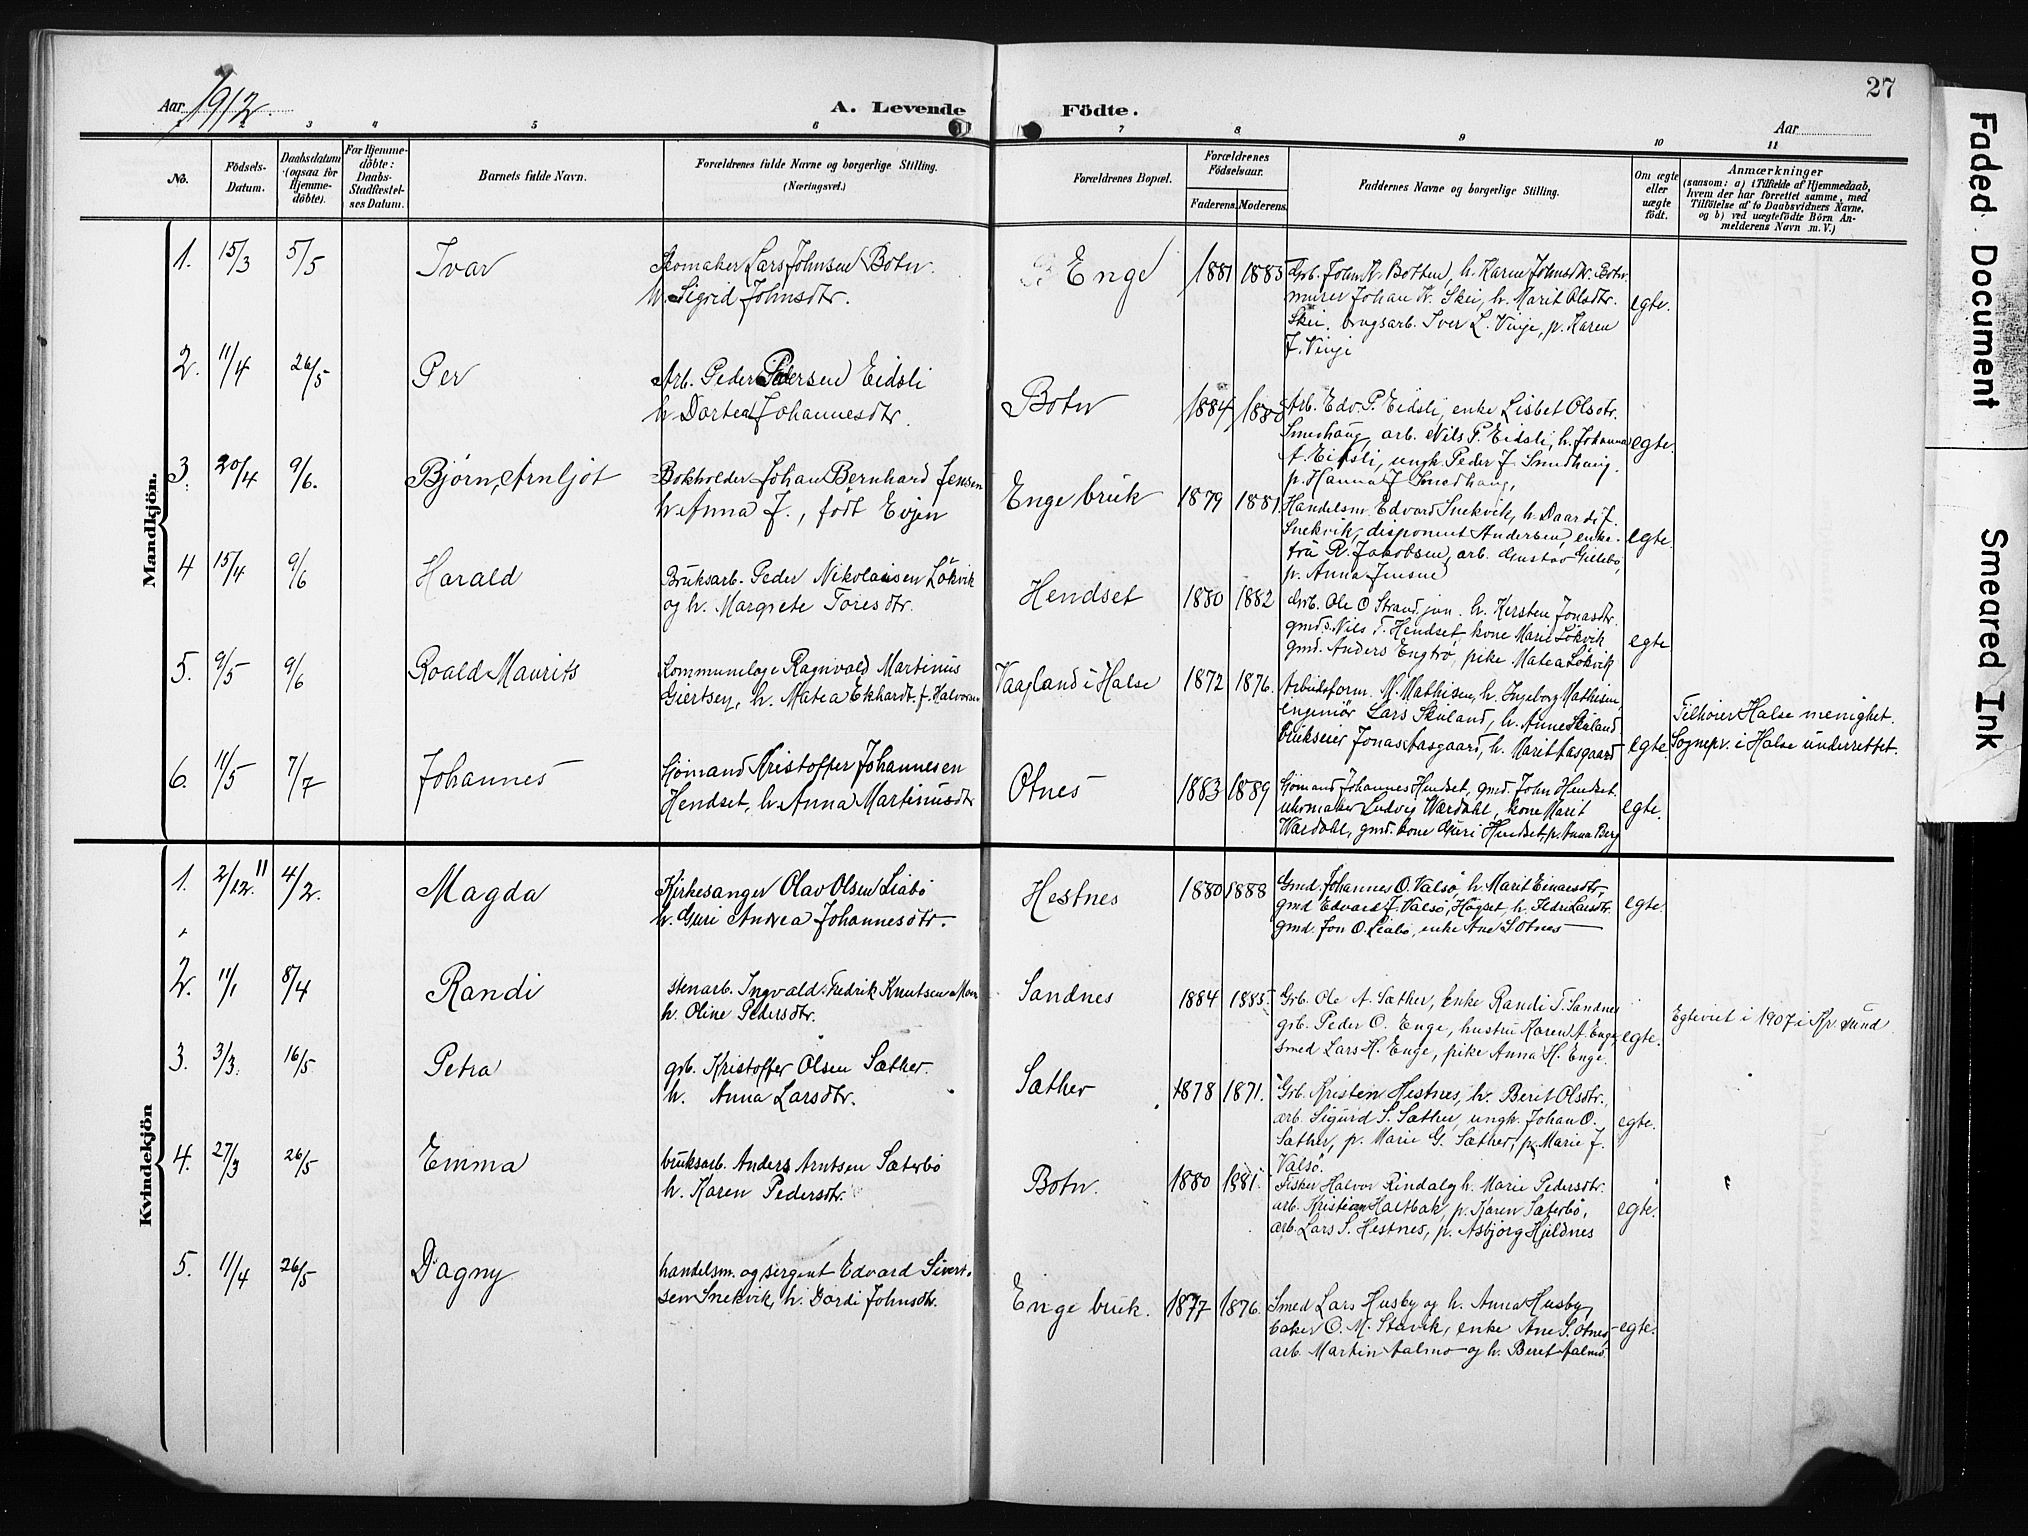 27
Aar 1912.
A. Levende Födte.
Aar
1 2 3 4 5 6 7 8 9 10 11
No.
Födsels-Datum.
Daabsdatum (ogsaa for Hjemme-döbte).
For Hjemme-döbte: Daabs-Stadfæstel-ses Datum.
Barnets fulde Navn.
Forældrenes fulde Navne og borgerlige Stilling. (Næringsvei.)
Forældrenes Bopæl.
Forældrenes Födselsaar.
Faderens. Moderens.
Faddernes Navne og borgerlige Stilling.
Om ægte eller uægte födt.
Anmærkninger
(saasom: a) i Tilfælde af Hjemmedaab, hvem der har forrettet samme, med Tilföielse af to Daabsvidners Navne, og b) ved uægtefödte Börn An-melderens Navn m. V.)
Mandkjön.
1. 15/3 5/5 Ivar
Skomaker Lars Johnsen Botn.
h. Sigrid Johnsdtr.
Enge 1881 1883
Grb. John K. Botten, h. Karen Johnsdtr. Botn
murer Johan K. Skei, h. Marit Olsdtr.
Skei, brugsarb. Iver L. Vinje, p. Karen
J. Vinje
egte.
2. 11/4 26/5 Per
Arb. Peder Pedersen Eidsli
h. Dortea Johannesdtr.
Botn 1884
Arb. Edv. P. Eidsli, enke Lisbet Olsdtr.
Smedhaug, arb. Nils P. Eidsli, h. Johanna
A. Eidsli, ungk. Peder J. Smedhaug.
p. Hanna J Smedhaug,
egte.
3. 20/4 9/6. Bjørn, Arnljot
Bokholder Johan Bernhard Jensen
h. Anna J., født Evjen
Enge bruk 1879 1881.
Handelsm. Edvard Snekvik, h. Daardi J.
Snekvik, disponent Andersen, enke-
frú R. Jakobsen, arb. Gustav Gillebo,
p. Anna Jensen
egte.
4 15/4 9/6 Harald
Bruksarb. Peder Nikolaisen Løkvik
og h. Margrete Toresdtr.
Hendset 1880 1882
Grb. Ole O Strand jun. h. Kersten Jonasdtr.
gmds. Nils T. Hendset, kone Marie Løkvik
gmd. Anders Engtrø, pike Matea Løkvik
egte
5. 9/5 9/6 Roald Maurits
Kommunelæge Ragnvald Martinus
Giertsen, h. Matea Ekhardt f. Halvorsen
Vaagland i Halse 1872 1876.
Arbeidsform. M. Mathisen, h. Ingeborg Mathisen,
engeniør Lars Skúland, h. Anne Skúland
brukseier Jonas Aasgaard, h. Marit Aasgaard
egte
Tilhører Halse menighet.
Sognepr. i Halse underrettet.
6. 11/5 7/7 Johannes
Sjømand Kristoffer Johannesen
Hendset, h. Anna Martinusdtr
Otnes 1883 1889
Sjømand Johannes Hendset, gmd. John Hendset
uhrmaker Ludvig Wærdahl, kone Marit
Wærdahl, gmd. kone Guri Hendset, p. Anna Berg
egte.
Kvindekjön
1. 2/12.11 4/2. Magda
Kirkesanger Olav Olsen Liabø
h. Guri Andrea Johannesdtr.
Hestnes 1880 1888
Gmd. Johannes O. Valsø h. Marit Einarsdtr,
gmd Edvard J. Valsø, Høgset, h. Ildri Larsdtr.
gmd. Jon O. Liabø, enke Ane S Otnes
egte.
2. 11/1 8/4 Randi
stenarb. Ingvald Fredrik Knutsen Moen
h. Oline Pedersdtr.
Sandnes 1884 1885.
Grb. Ole A. Sæther, enke Randi T. Sandnes
grb. Peder O. Enge, hustru Karen A. Enge,
smed Lars H. Enge, pike Anna H. Enge.
egte.
Egteviet i 1907 i Kr. sund
3. 3/3. 16/5 Petra
grb. Kristoffer Olsen Sæther.
h. Anna Larsdtr.
Sæther 1878 1871.
Grb. Kristen Hestnes, h. Berit Olsdtr.,
arb. Sigurd S. Sæther, ungk. Johan O.
Sæther, p. Marie G. Sæther, p. Marie J.
Valsø.
egte.
4. 27/3 26/5 Emma
bruksarb. Anders Arntsen Sæterbø
h. Karen Pedersdtr.
Botn. 1880 1881.
Fisker Halvor Rindal og h. Marie Pedersdtr.
arb. Kristian Haltbak, p. Karen Sæterbø,
arb. Lars S. Hestnes, p. Asbjørg Hjeldnes
egte.
5. 11/4 26/5 Dagny
handelsm. og sergent Edvard Sivert-
sen Snekvik, h. Dordi Johnsdtr.
Enge bruk. 1877 1876.
Smed Lars Husby og h. Anna Husby,
baker O. M. Stavik, enke Ane S. Otnes,
arb. Martin Aalmo og h. Beret Aalmo
egte.
Faded Document
Smeared Ink